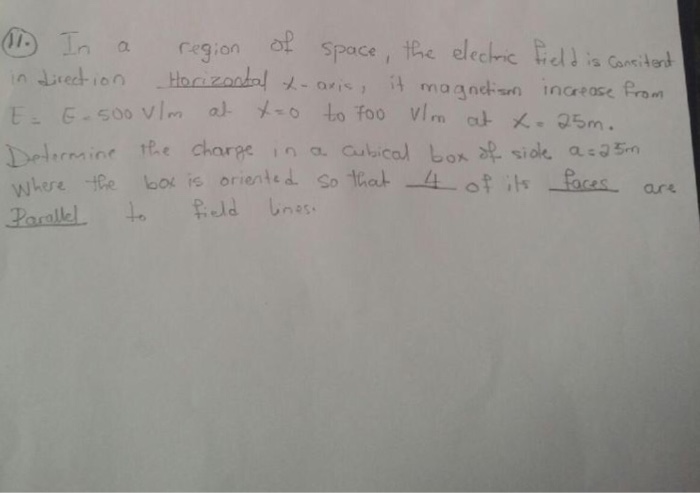 11. In a region of space, the electric field is consitent
in direction Horizontal x-axis, it magnetism increase from
E = E = 500 V/m at x=0 to 700 V/m at x = 25m.
Determine the charge in a cubical box of side a=25m
Where the box is oriented so that 4 of its faces are
Parallel to field lines.